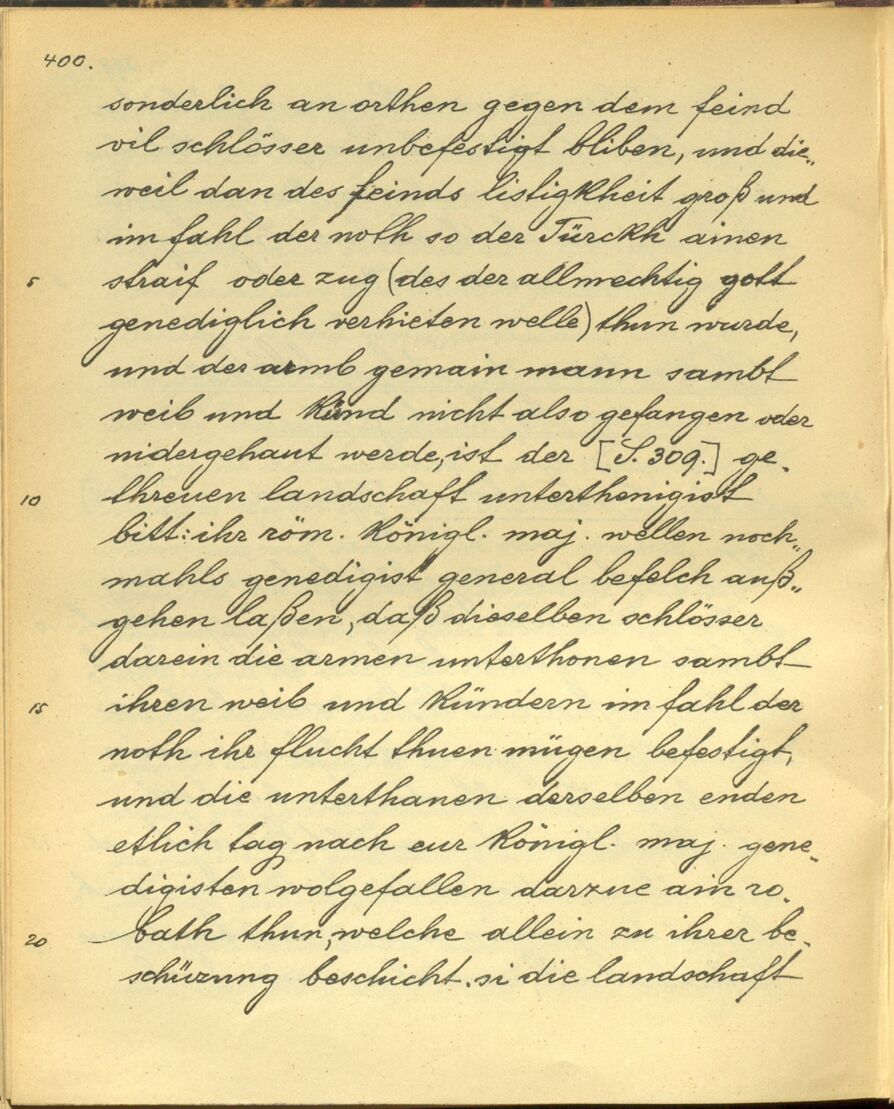 400.
sonderlich an orthen gegen dem feind
vil schlösser unbefestigt bliben, und die„
weil dan des feinds listigkheit groß und
im fahl der noth so der Türckh ainen
5 straif oder zug (des der allmechtig gott
genediglich verhieten welle) thun wurde,
und der armb gemain mann sambt
weib und künd nicht also gefangen oder
nidergehaut werde, ist der [S. 309.] ge-
10 threuen landschaft unterthenigist
bitt: ihr röm. königl. maj. wellen noch„
mahls genedigist general befelch auß„
gehen laßen, daß dieselben schlösser
darein die armen unterthonen sambt
15 ihren weib und kündern im fahl der
noth ihr flucht thuen mügen befestigt,
und die unterthanen derselben enden
etlich tag nach eur königl. maj. gene-
digisten wolgefallen darzue ain ro-
20 bath thun, welche allein zu ihrer be-
schüzung beschicht. si die landschaft